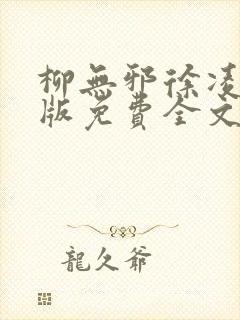 柳無邪徐凌
版免費全文
龍久爺